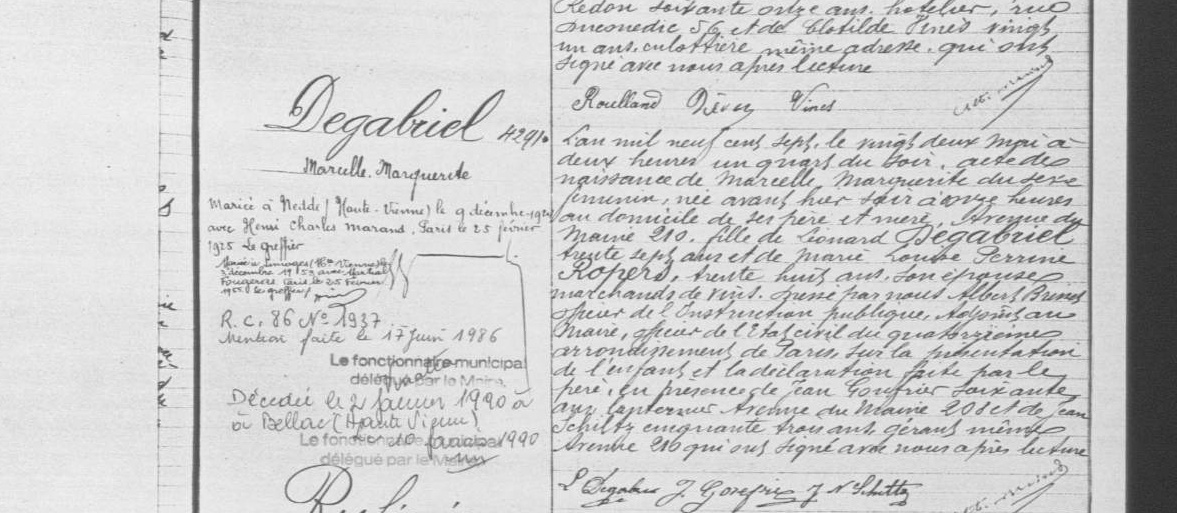 Redon soixante onze ans, hotelier, rue
56 et de Clotilde Vines vingt
un ans, culottière même adresse, qui ont
signé avec nous après lecture
Roulland Vines
Degabriel 4291.
Marcelle Marguerite
Mariée à Nedde (Haute-Vienne) le 9 décembre
avec Henri Charles Marand. Paris le 25 février
1925 Le greffier
Mariée à Limoges (Hte Vienne) le
3 décembre 1953 avec Martial
Fougeron Paris le 25 février
le greffier
R.C. 86 No 1937
Mention faite le 17 juin 1986
Le fonctionnaire municipal
délégué par le Maire,
Décédée le 2 janvier 1990 à
à Bellac (Haute Vienne)
Le fonctionnaire municipal
le 10 1990
délégué par le Maire
L'an mil neuf cent sept, le vingt deux Mai à
deux heures un quart du soir, acte de
naissance de Marcelle Marguerite du sexe
féminin, née avant hier soir à onze heures
au domicile de ses père et mère, Avenue du
Maine 210, fille de Léonard Degabriel
trente sept ans et de Marie Louise Perrine
Ropers, trente huit ans, son épouse
marchands de vins. Dressé par nous Albert
officier de l'Instruction publique, Adjoint au
Maire, officier de l'Etat civil du quatorzième
arrondissement de Paris, sur la présentation
de l'enfant et la déclaration faite par le
père, en présence de Jean soixante
ans Avenue du Maine 208 et de Jean
Schiltz cinquante trois ans, gérant même
Avenue 210 qui ont signé avec nous après lecture
L Degabriel J J N Schiltz